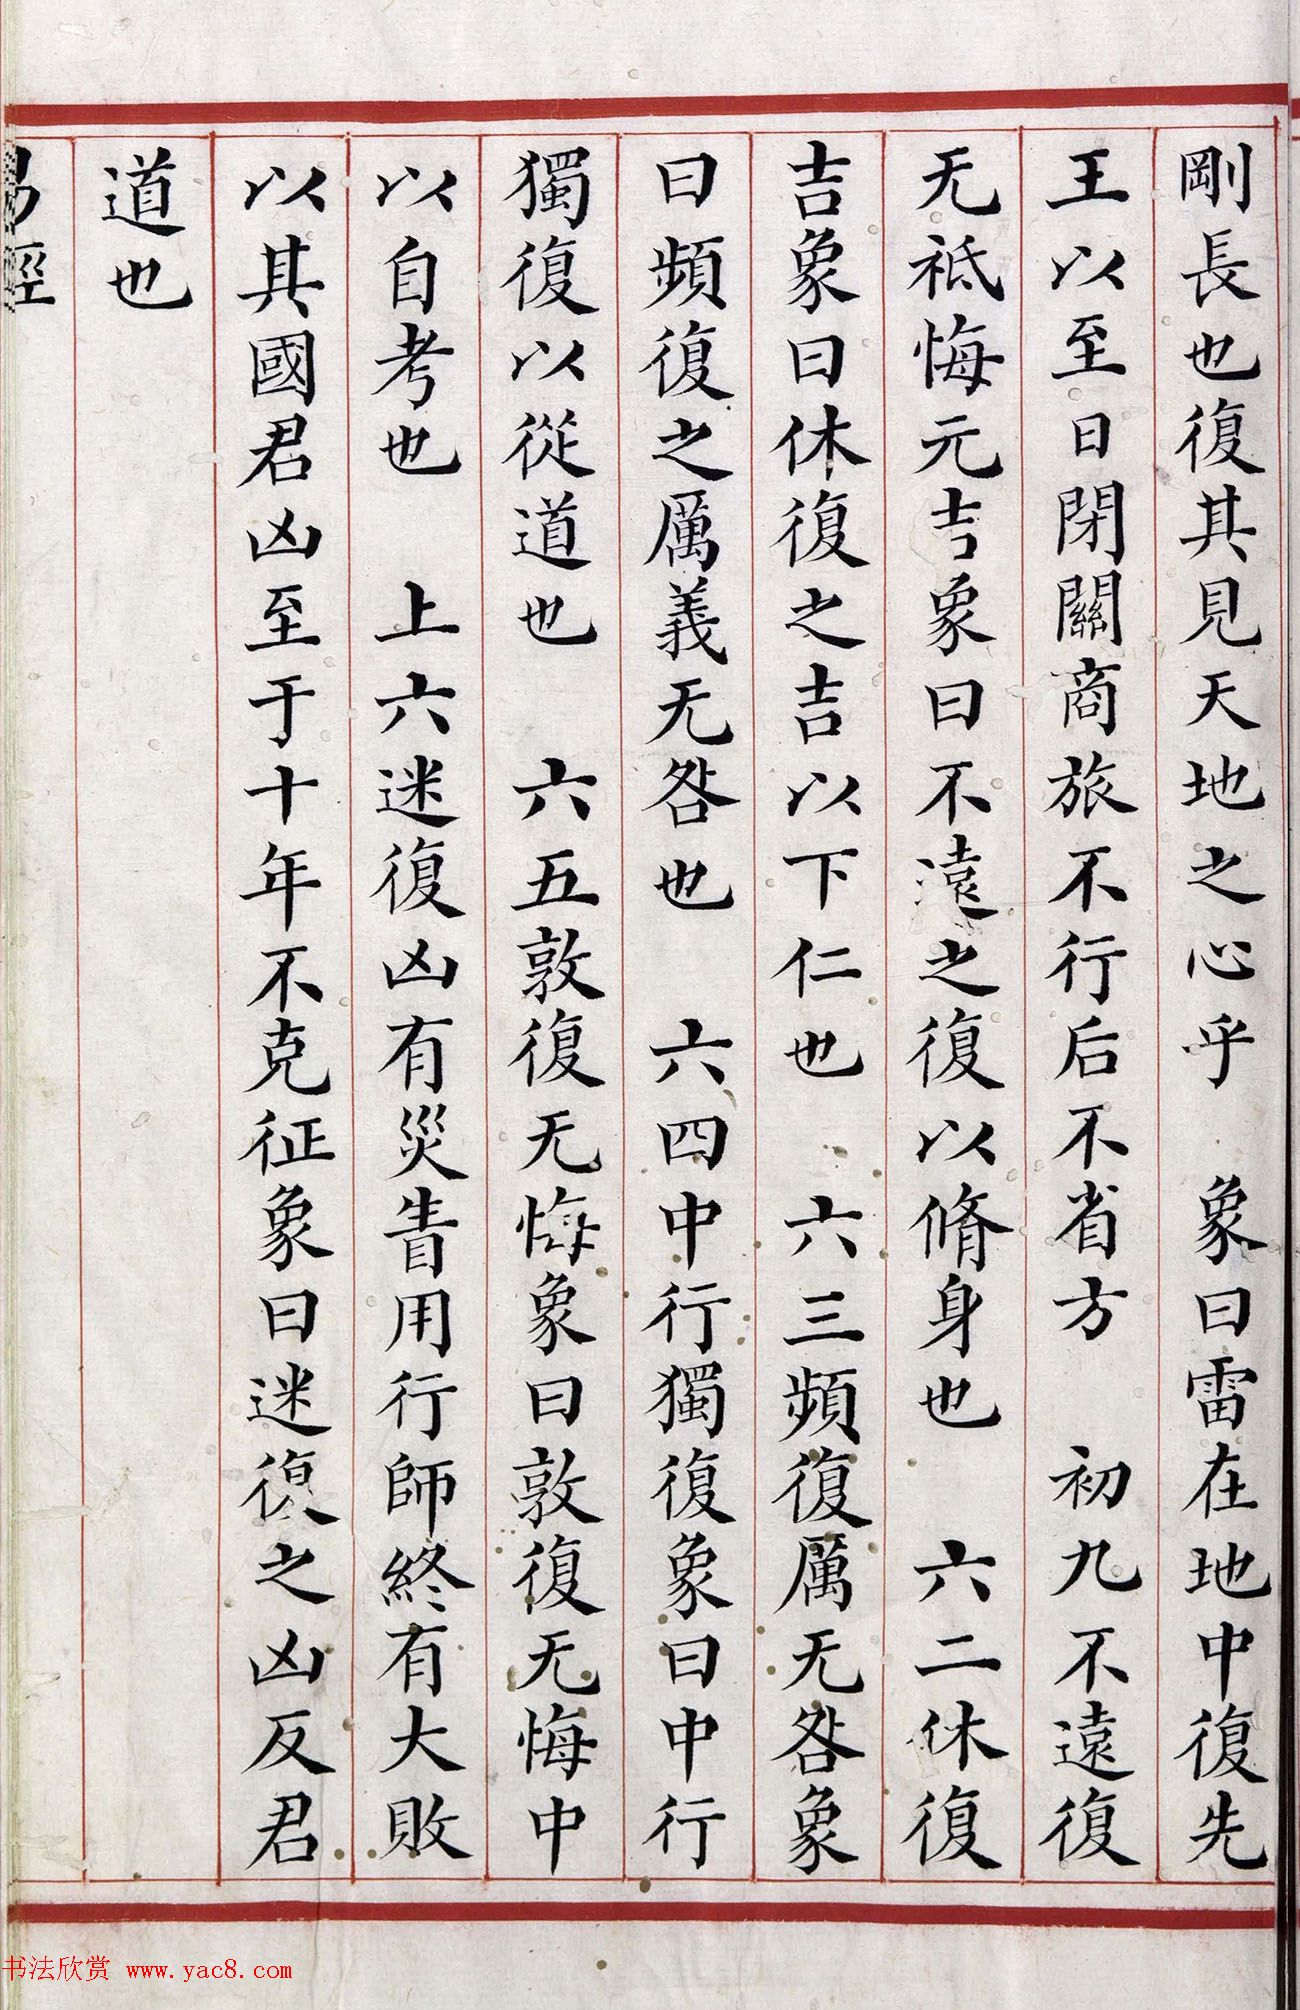 剛長也復其見天地之心乎　象曰雷在地中復先
王以至日閉關商旅不行后不省方　初九不遠復
无祗悔元吉象曰不遠之復以脩身也　六二休復
吉象曰休復之吉以下仁也　六三頻復厲无咎象
曰頻復之厲義无咎也　六四中行獨復象曰中行
獨復以從道也　六五敦復无悔象曰敦復无悔中
以自考也　上六迷復凶有災眚用行師終有大敗
以其國君凶至于十年不克征象曰迷復之凶反君
道也
易經
书法欣赏 www.yac8.com